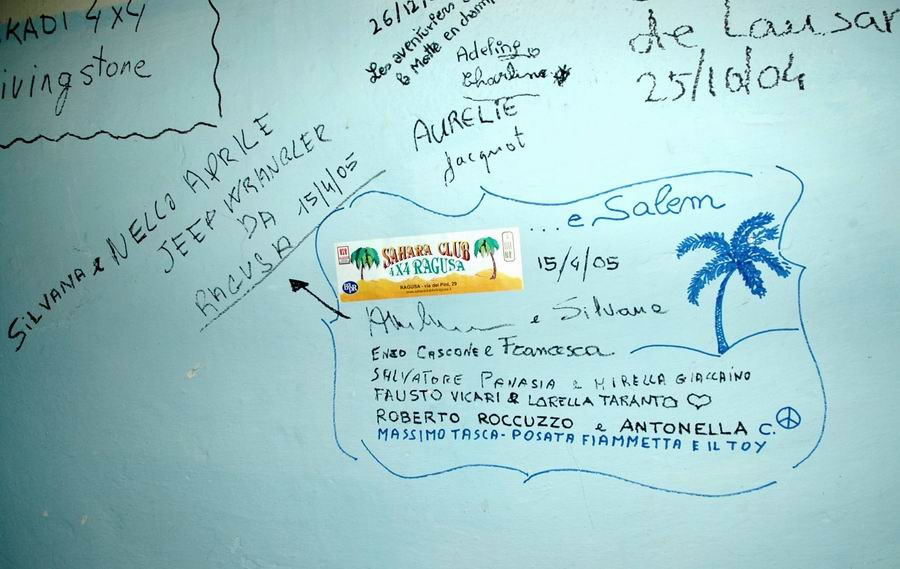 KADI 4x4
ivingstone
26/12/
Les aventuriers
la Motte en
Adeline
Charline
AURELIE
Jacquot
de Lausar
25/10/04
SILVANA e NELLO APRILE
JEEP WRANGLER
DA 15/4/05
RAGUSA
...e Salem
SAHARA CLUB
4X4 RAGUSA
RAGUSA - via dei Pini, 29
15/4/05
e Silvana
ENZO CASCONE e Francesca
SALVATORE PANASIA e MIRELLA GIACCAINO
FAUSTO VICARI & LORELLA TARANTO
ROBERTO ROCCUZZO e ANTONELLA C.
MASSIMO TASCA - POSATA FIAMMETTA E IL TOY